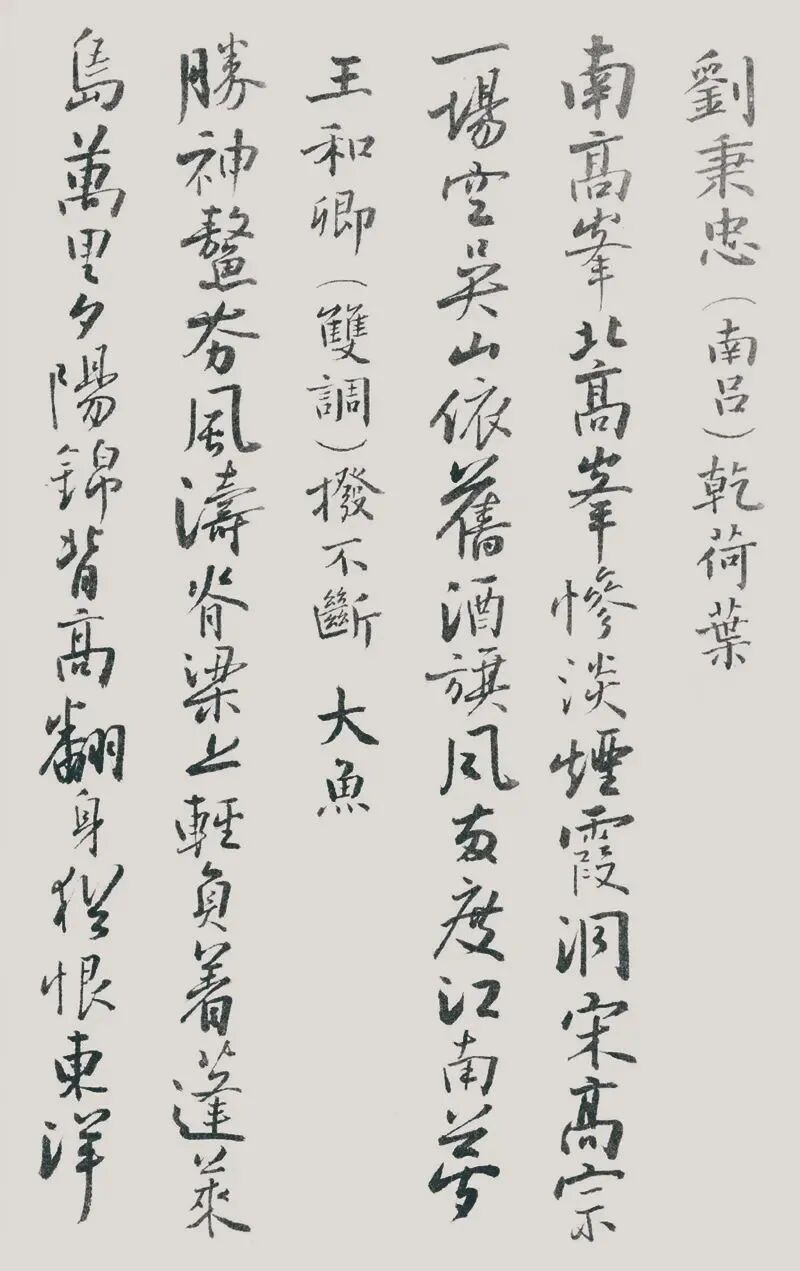 劉秉忠（南呂）乾荷葉
南高峯北高峯慘淡煙霞洞宋高宗
一場空吳山依舊酒旗風兩度江南夢
王和卿（雙調）撥不斷 大魚
勝神鼇夯風濤脊梁上輕負着蓬萊
島萬里夕陽錦背高翻身猶恨東洋